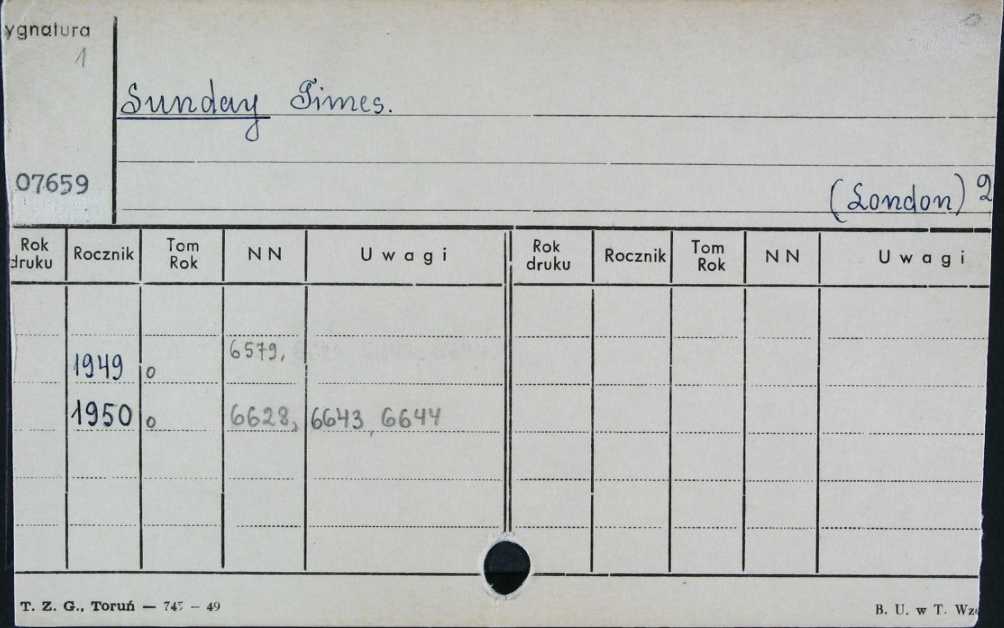 ygnatura
1
Sunday Times.
07659
(London) 2
Rok druku Rocznik Tom Rok NN Uwagi Rok druku Rocznik Tom Rok NN Uwagi
1949 o 6579,
1950 o 6628, 6643, 6644
T. Z. G., Toruń — 745 — 49
B. U. w T.